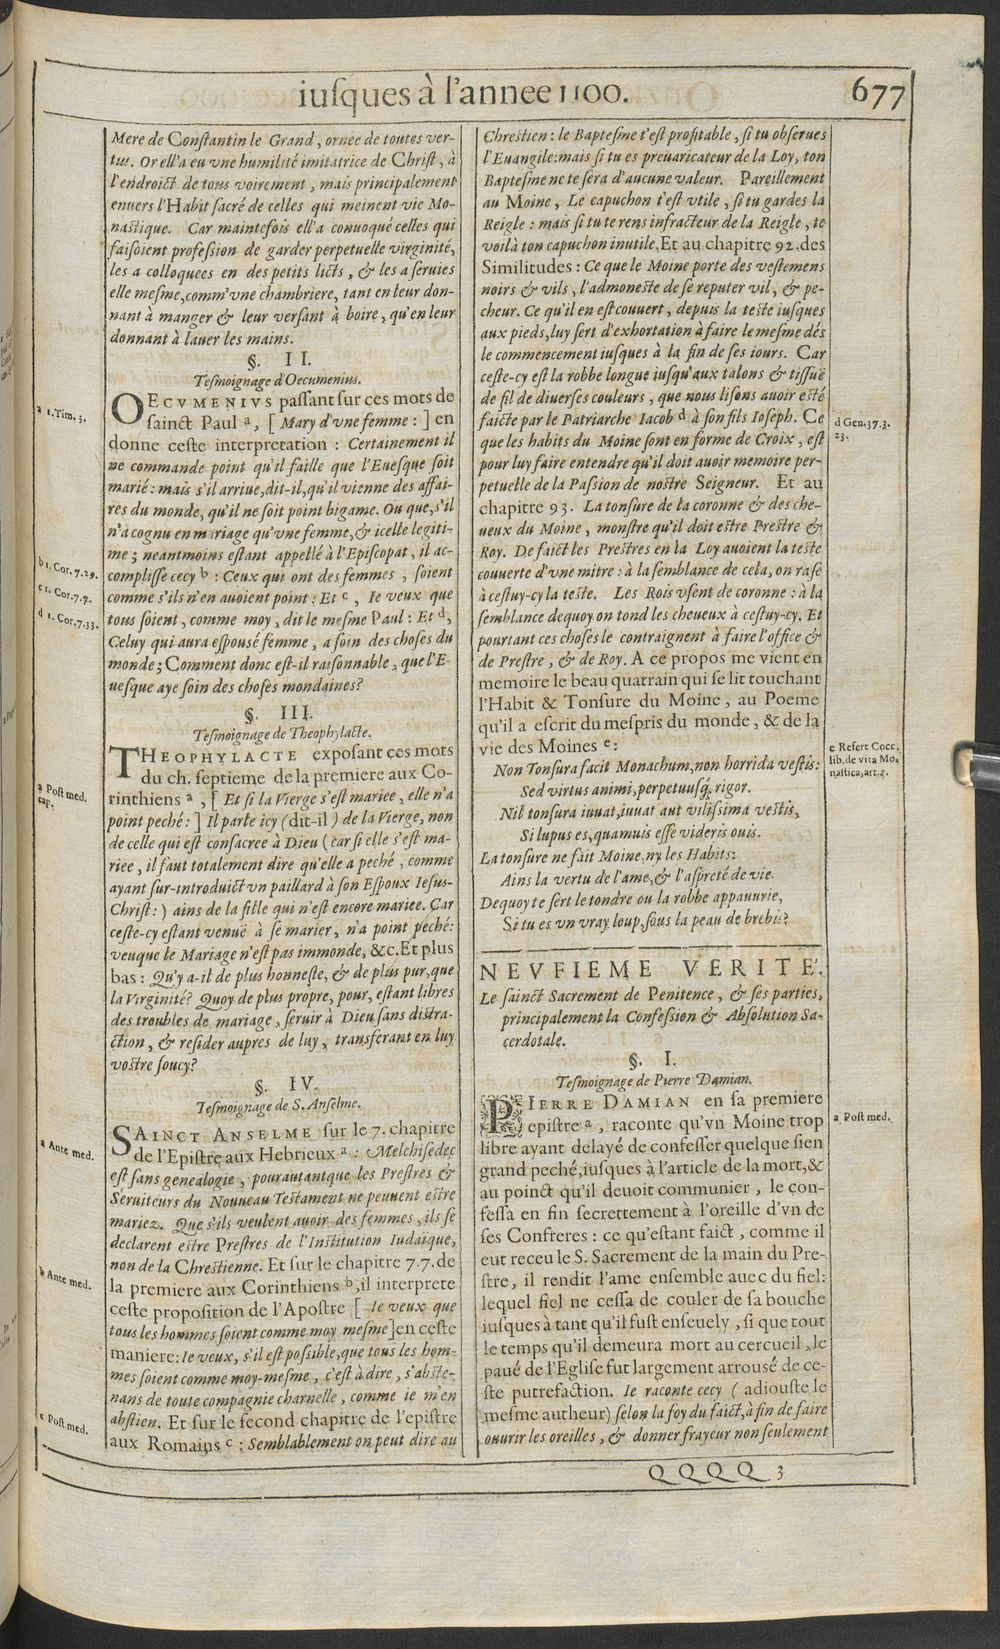 iuſques à l'annee 1100. 677
Mere de Conſtantin le Grand, ornee de toutes ver-
tus. Or ell'a eu vne humilité imitatrice de Chriſt, à
l'endroict de tous voirement, mais principalement
enuers l'Habit ſacré de celles qui meinent vie Mo-
naſtique. Car maintefois ell'a conuoqué celles qui
faiſoient profeſsion de garder perpetuelle virginité,
les a colloquees en des petits licts, & les a ſeruies
elle meſme, comm'vne chambriere, tant en leur don-
nant à manger & leur verſant à boire, qu'en leur
donnant à lauer les mains.
§. II.
Teſmoignage d'Oecumenius.
OECVMENIVS paſſant ſur ces mots de
ſainct Paul a, [ Mary d'vne femme : ] en
donne ceſte interpretation : Certainement il
ne commande point qu'il faille que l'Eueſque ſoit
marié : mais s'il arriue, dit-il, qu'il vienne des affai-
res du monde, qu'il ne ſoit point bigame. Ou que, s'il
n'a cognu en mariage qu'vne femme, & icelle legiti-
me ; neantmoins eſtant appellé à l'Epiſcopat, il ac-
compliſſe cecy b : Ceux qui ont des femmes, ſoient
comme s'ils n'en auoient point : Et c, Ie veux que
tous ſoient, comme moy, dit le meſme Paul : Et d,
Celuy qui aura eſpouſé femme, a ſoin des choſes du
monde ; Comment donc eſt-il raiſonnable, que l'E-
ueſque aye ſoin des choſes mondaines?
§. III.
Teſmoignage de Theophylacte.
THEOPHYLACTE expoſant ces mots
du ch. ſeptieme de la premiere aux Co-
rinthiens a, [ Et ſi la Vierge s'eſt mariee, elle n'a
point peché : ] Il parle icy (dit-il) de la Vierge, non
de celle qui eſt conſacree à Dieu (car ſi elle s'eſt ma-
riee, il faut totalement dire qu'elle a peché, comme
ayant ſur-introduict vn paillard à ſon Eſpoux Ieſus-
Chriſt : ) ains de la fille qui n'eſt encore mariee. Car
ceſte-cy eſtant venuë à ſe marier, n'a point peché:
veuque le Mariage n'eſt pas immonde, &c. Et plus
bas : Qu'y a-il de plus honneſte, & de plus pur, que
la Virginité? Quoy de plus propre, pour, eſtant libres
des troubles de mariage, ſeruir à Dieu ſans diſtra-
ction, & reſider aupres de luy, transferant en luy
voſtre ſoucy?
§. IV.
Teſmoignage de S. Anſelme.
SAINCT ANSELME ſur le 7. chapitre
de l'Epiſtre aux Hebrieux a : Melchiſedec
eſt ſans genealogie, pourautantque les Preſtres &
Seruiteurs du Nouueau Teſtament ne peuuent eſtre
mariez. Que s'ils veulent auoir des femmes, ils ſe
declarent eſtre Preſtres de l'Inſtitution Iudaïque,
non de la Chreſtienne. Et ſur le chapitre 7.7. de
la premiere aux Corinthiens b, il interprete
ceſte propoſition de l'Apoſtre [ Ie veux que
tous les hommes ſoient comme moy meſme] en ceſte
maniere: Ie veux, s'il eſt poſsible, que tous les hom-
mes ſoient comme moy-meſme, c'eſt à dire, s'abſte-
nans de toute compagnie charnelle, comme ie m'en
abſtien. Et ſur le ſecond chapitre de l'epiſtre
aux Romains c : Semblablement on peut dire au
a 1.Tim. 3.
b 1. Cor. 7.29.
c 1. Cor. 7.7.
d 1. Cor. 7.33.
a Poſt med.
cap.
a Ante med.
b Ante med.
c Poſt med.
Chreſtien : le Bapteſme t'eſt profitable, ſi tu obſerues
l'Euangile: mais ſi tu es preuaricateur de la Loy, ton
Bapteſme ne te ſera d'aucune valeur. Pareillement
au Moine, Le capuchon t'eſt vtile, ſi tu gardes la
Reigle : mais ſi tu te rens infracteur de la Reigle, te
voilà ton capuchon inutile, Et au chapitre 92. des
Similitudes : Ce que le Moine porte des veſtemens
noirs & vils, l'admoneſte de ſe reputer vil, & pe-
cheur. Ce qu'il en eſt couuert, depuis la teſte iuſques
aux pieds, luy ſert d'exhortation à faire le meſme dés
le commencement iuſques à la fin de ſes iours. Car
ceſte-cy eſt la robbe longue iuſqu'aux talons & tiſſuë
de fil de diuerſes couleurs, que nous liſons auoir eſté
faicte par le Patriarche Iacob d à ſon fils Ioſeph. Ce
que les habits du Moine ſont en forme de Croix, eſt
pour luy faire entendre qu'il doit auoir memoire per-
petuelle de la Paſsion de noſtre Seigneur. Et au
chapitre 93. La tonſure de la coronne & des che-
ueux du Moine, monſtre qu'il doit eſtre Preſtre &
Roy. De faict les Preſtres en la Loy auoient la teſte
couuerte d'vne mitre : à la ſemblance de cela, on raſe
à ceſtuy-cy la teſte. Les Rois vſent de coronne : à la
ſemblance dequoy on tond les cheueux à ceſtuy-cy. Et
pourtant ces choſes le contraignent à faire l'office &
de Preſtre, & de Roy. A ce propos me vient en
memoire le beau quatrain qui ſe lit touchant
l'Habit & Tonſure du Moine, au Poeme
qu'il a eſcrit du meſpris du monde, & de la
vie des Moines e :
Non Tonſura facit Monachum, non horrida veſtis:
Sed virtus animi, perpetuuſq́; rigor.
Nil tonſura iuuat, iuuat aut viliſsima veſtis,
Si lupus es, quamuis eſſe videris ouis.
La tonſure ne fait Moine, ny les Habits:
Ains la vertu de l'ame, & l'aſpreté de vie.
Dequoy te ſert le tondre ou la robbe appauurie,
Si tu es vn vray loup, ſous la peau de brebis?
NEVFIEME VERITE'.
Le ſainct Sacrement de Penitence, & ſes parties,
principalement la Confeſsion & Abſolution Sa-
cerdotale.
§. I.
Teſmoignage de Pierre Damian.
PIERRE DAMIAN en ſa premiere
epiſtre a, raconte qu'vn Moine trop
libre ayant delayé de confeſſer quelque ſien
grand peché, iuſques à l'article de la mort, &
au poinct qu'il deuoit communier, le con-
feſſa en fin ſecrettement à l'oreille d'vn de
ſes Confreres : ce qu'eſtant faict, comme il
eut receu le S. Sacrement de la main du Pre-
ſtre, il rendit l'ame enſemble auec du fiel:
lequel fiel ne ceſſa de couler de ſa bouche
iuſques à tant qu'il fuſt enſeuely, ſi que tout
le temps qu'il demeura mort au cercueil, le
paué de l'Egliſe fut largement arrouſé de ce-
ſte putrefaction. Ie raconte cecy ( adiouſte le
meſme autheur) ſelon la foy du faict, à fin de faire
ouurir les oreilles, & donner frayeur non ſeulement
d Gen. 37.3.
23.
e Refert Cocc.
lib. de vita Mo-
naſtica, art. 5.
a Poſt med.
QQQQ 3